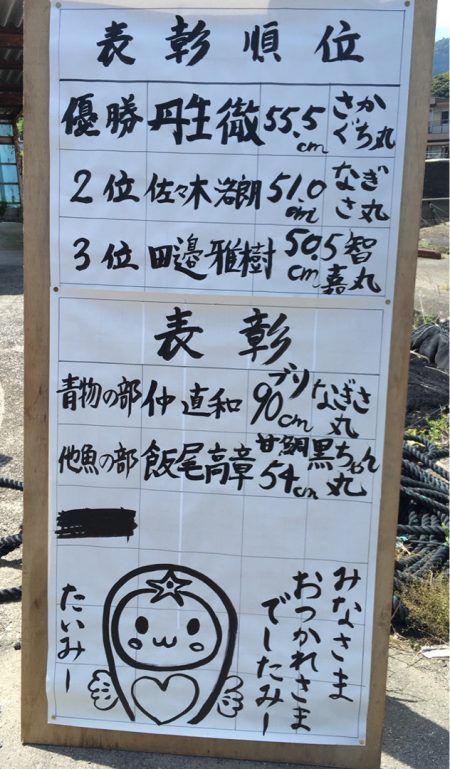 表彰順位
優勝 丹生徹 55.5cm さかぐち丸
2位 佐々木浩朗 51.0cm なぎさ丸
3位 田邊雅樹 50.5cm 智嘉丸
表彰
青物の部 仲直和 ブリ90cm なぎさ丸
他魚の部 飯尾高章 甘鯛54cm 黒ちゃん丸
みなさま
おつかれさま
でしたみー
たいみー